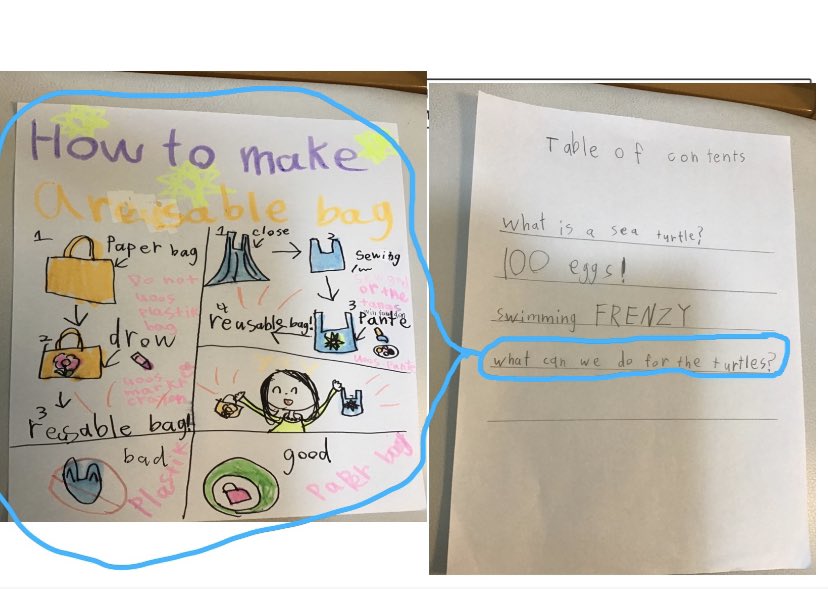 How to make
a reusable bag
1
Paper bag
Do not
uoos
plastik
bag
2
drow
uoos
marker
crayon
3
reusable bag!
1
close
2
sewing
or the
3
Pante
4
reusable bag!
bad
Plastik
good
Paper bag
Table of contents
What is a sea turtle?
100 eggs!
swimming FRENZY
what can we do for the turtles?